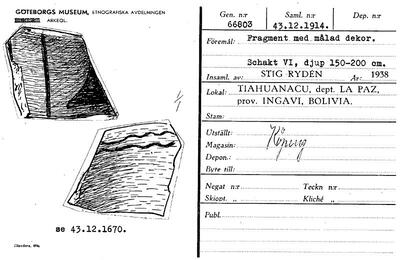 GÖTEBORGS MUSEUM, ETNOGRAFISKA AVDELNINGEN
ARKEOL.
se 43.12.1670.
Gen. n:r Saml. n:r Dep. n:r
66803 43.12.1914.
Föremål: Fragment med målad dekor.
Schakt VI, djup 150-200 cm.
Insaml. av: STIG RYDÉN År: 1938
Lokal: TIAHUANACU, dept. LA PAZ,
prov. INGAVI, BOLIVIA.
Stam:
Utställt:
Magasin:
Depon.:
Byte till:
Negat n:r Teckn n:r
Skiopt. „ Kliché „
Publ.